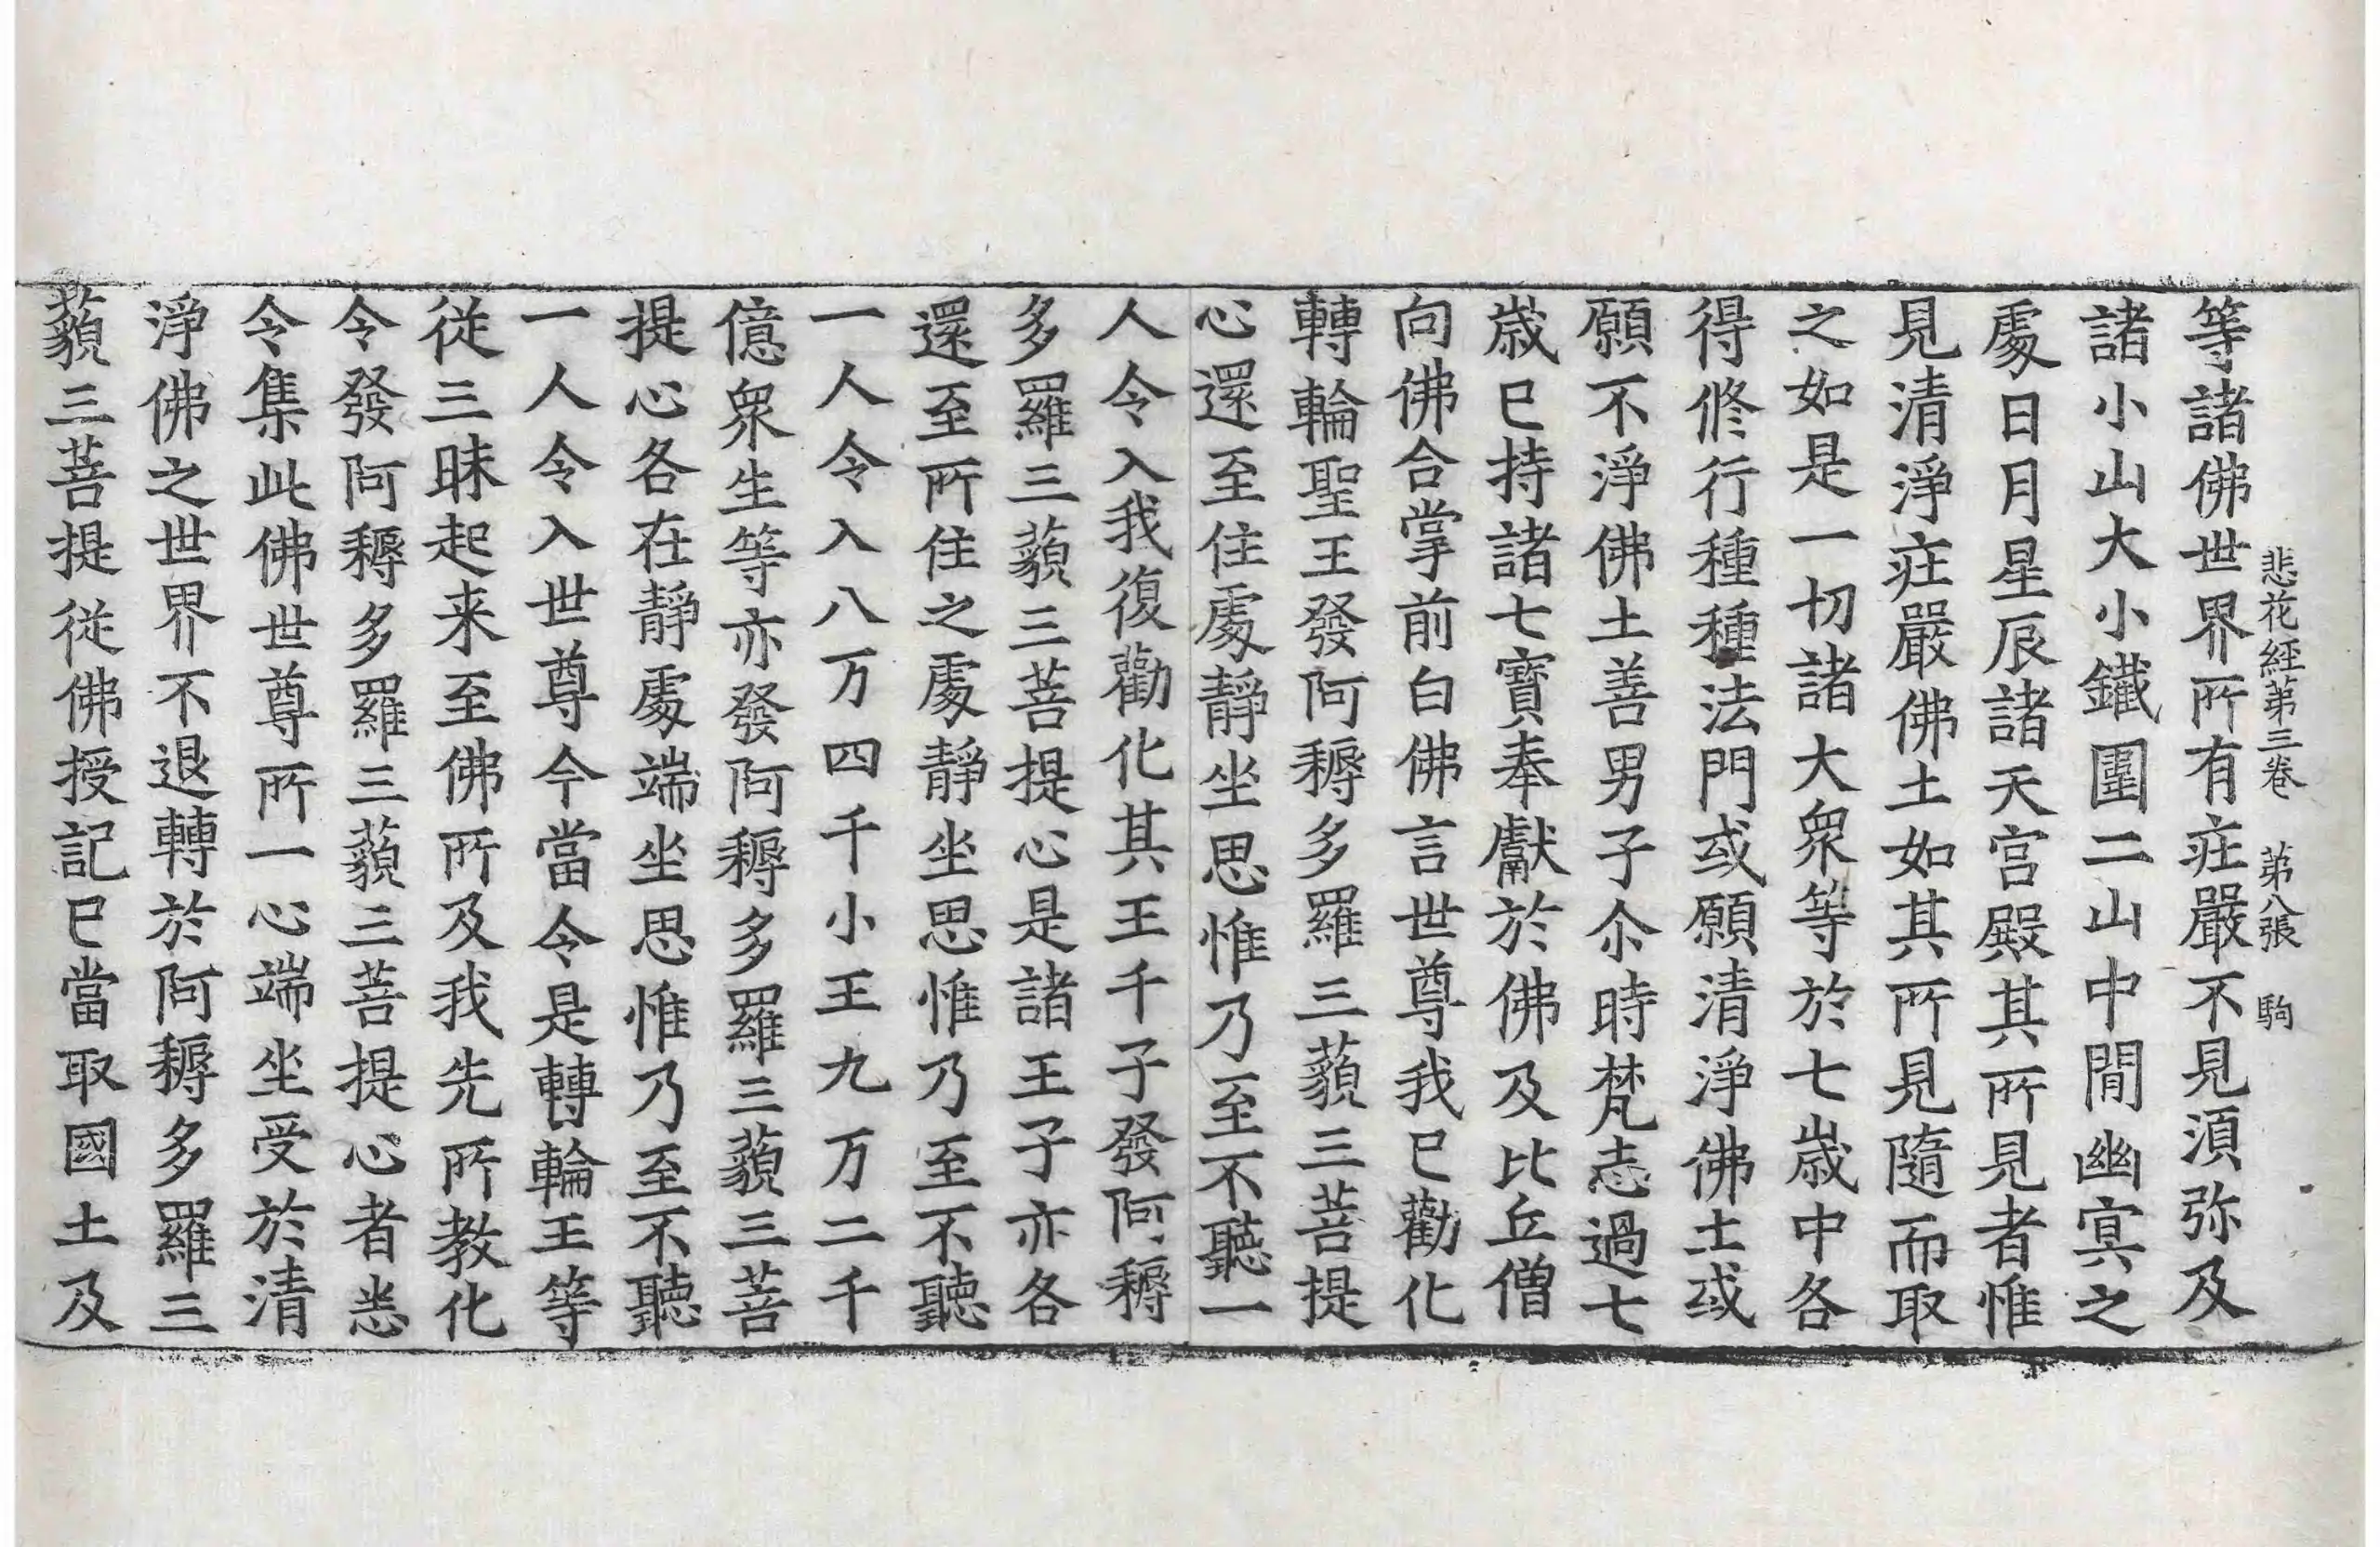 悲花経苐三卷 苐八張 駒
等諸佛世界所有莊嚴不見湏弥及
諸小山大小鐵圍二山中閒幽㝠之
處日月星辰諸天宫殿其所見者惟
見清淨莊嚴佛土如其所見隨而取
之如是一切諸大衆等於七歲中各
得修行種種法門或願清淨佛土或
願不淨佛土善男子尒時梵志過七
歲已持諸七寶奉獻於佛及比丘僧
向佛合掌前白佛言世尊我已勸化
轉輪聖王發阿耨多羅三藐三菩提
心還至住處靜坐思惟乃至不聽一
人令入我復勸化其王千子發阿耨
多羅三藐三菩提心是諸王子亦各
還至所住之處靜坐思惟乃至不聽
一人令入八万四千小王九万二千
億衆生等亦發阿耨多羅三藐三菩
提心各在靜處端坐思惟乃至不聽
一人令入世尊今當令是轉輪王等
從三昧起来至佛所及我先所教化
令發阿耨多羅三藐三菩提心者悉
令集此佛世尊所一心端坐受於清
淨佛之世界不退轉於阿耨多羅三
藐三菩提從佛授記已當取國土及